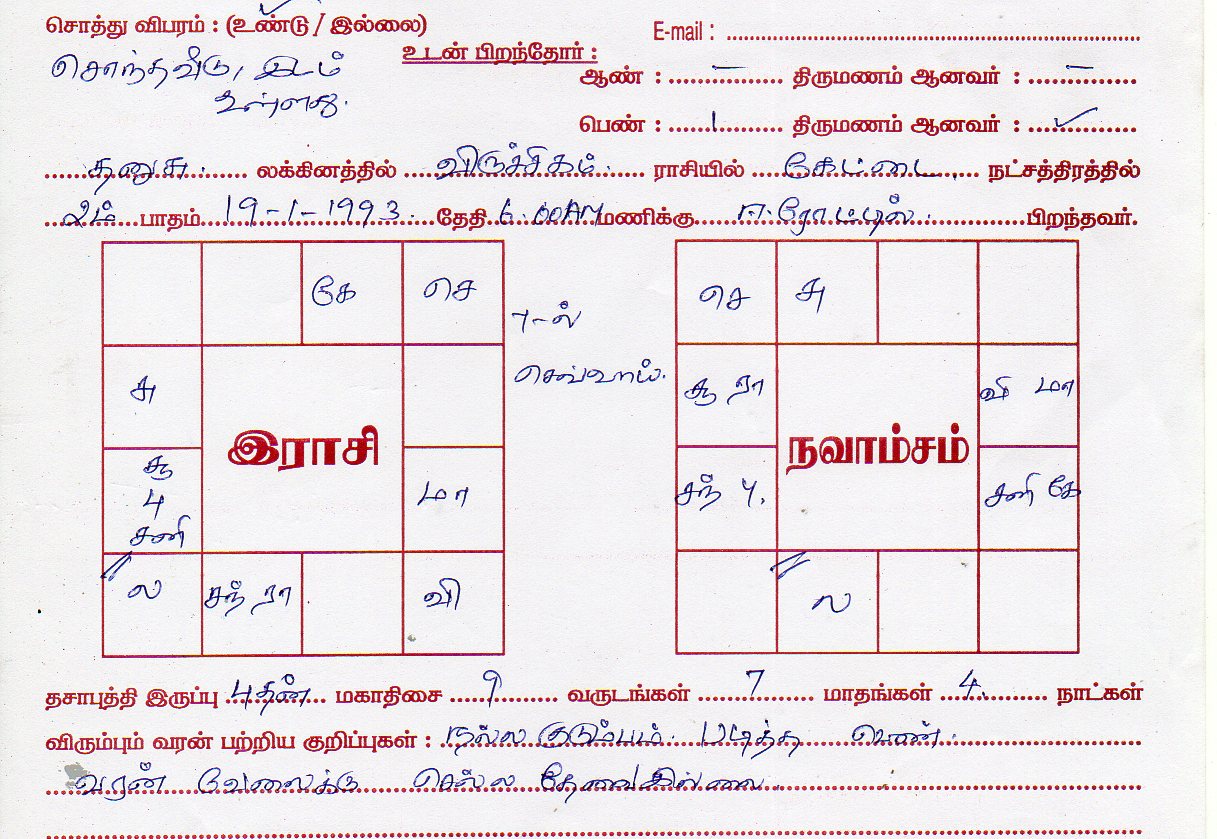 சொத்து விபரம் : (உண்டு / இல்லை)
E-mail :
சொந்தவீடு, இடம்
உள்ளது.
உடன் பிறந்தோர் :
ஆண் : – திருமணம் ஆனவர் : –
பெண் : 1 திருமணம் ஆனவர் : ✓
தனுசு. லக்கினத்தில் விருச்சிகம். ராசியில் கேட்டை. நட்சத்திரத்தில்
2ம் பாதம் 19-1-1993. தேதி 6.00AM மணிக்கு ஈரோட்டில். பிறந்தவர்.
கே செ
சு
சூ
பு
சனி
மா
ல சந் ரா வி
இராசி
7-ல்
செவ்வாய்.
செ சு
சூ ரா வி மா
சந் பு. சனி கே
ல
நவாம்சம்
தசாபுத்தி இருப்பு புதன் மகாதிசை 9 வருடங்கள் 7 மாதங்கள் 4. நாட்கள்
விரும்பும் வரன் பற்றிய குறிப்புகள் : நல்ல குடும்பம். படித்த பெண்.
வரன் வேலைக்கு செல்ல தேவையில்லை.